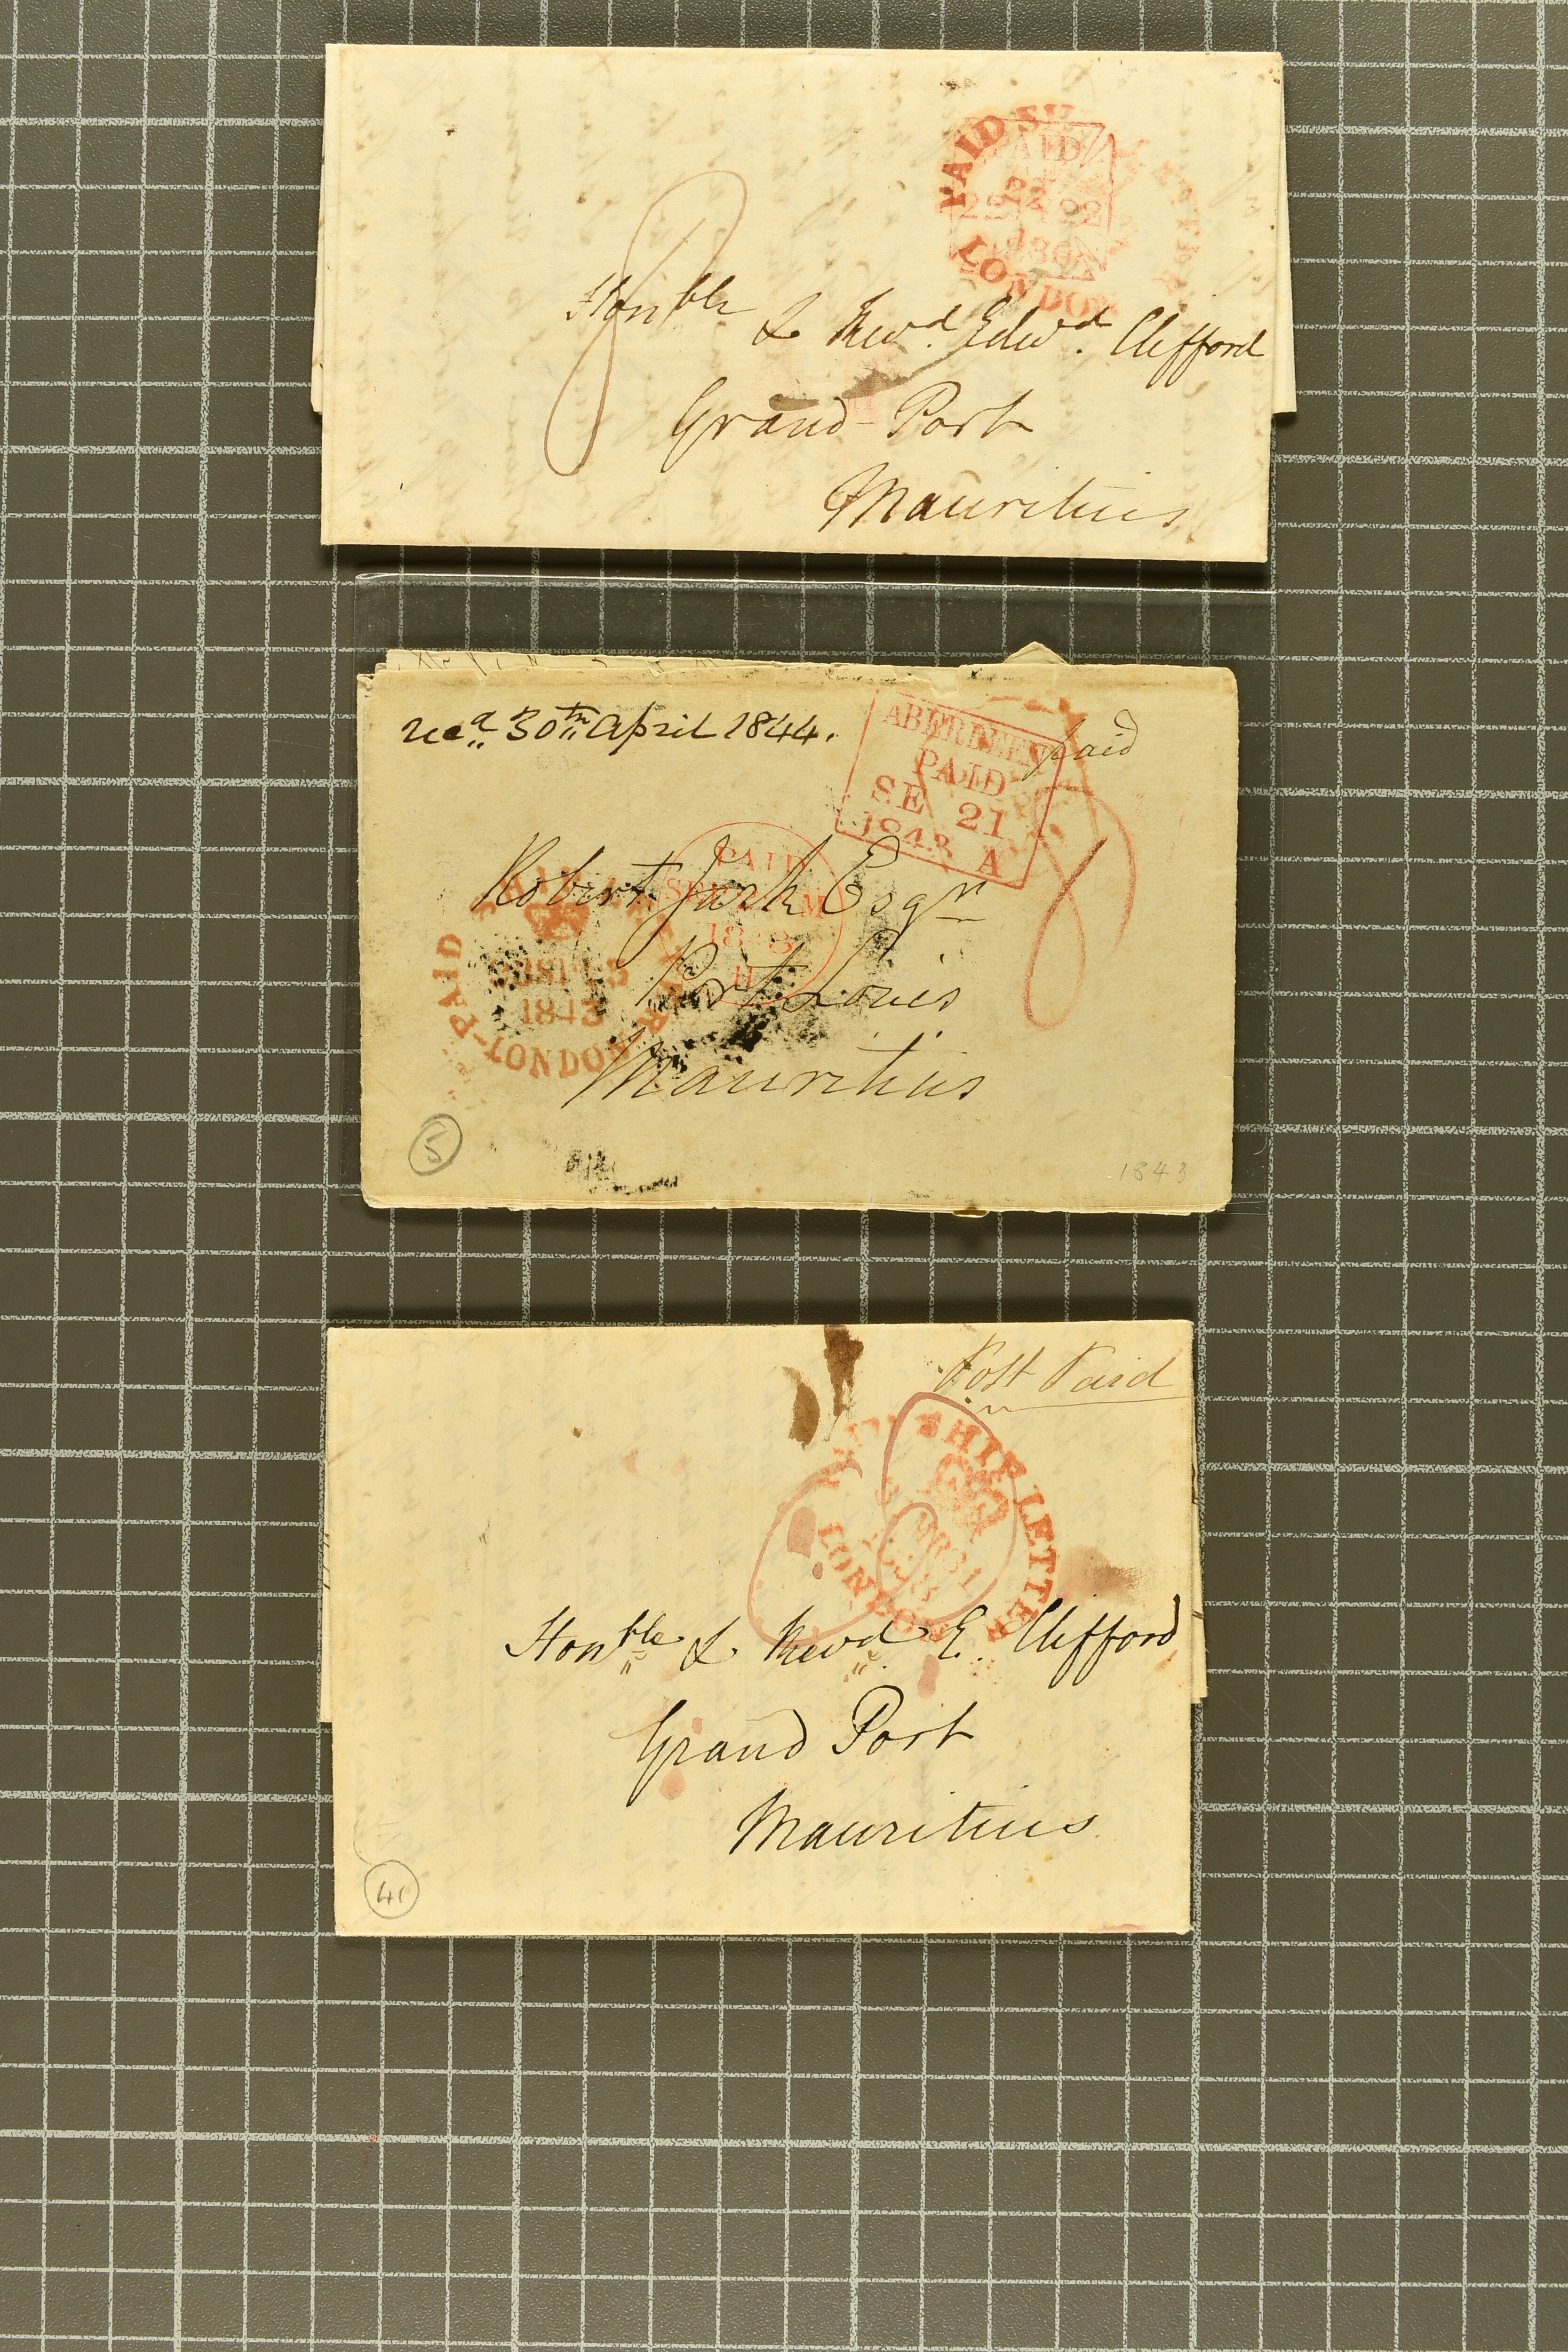 PAID
LONDON
PAID
Honble & Revd. Edwd. Clifford
Grand-Port
Mauritius
recd 30th April 1844.
paid
ABERDEEN
PAID
SE 21
1843 A
8
Robert Jack Esqr
Port Louis
Mauritius
PAID
PAID
1843
LONDON
5
1843
Post Paid
SHIP LETTER
LONDON
Honble & Revd. E. Clifford
Grand Port
Mauritius